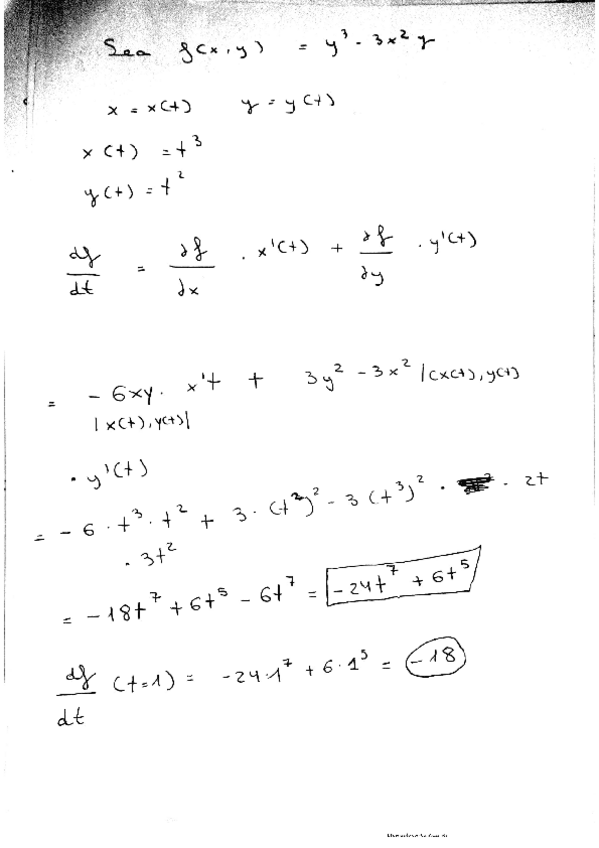 Sea f(x,y) = y³ - 3x²y
x = x(t) y = y(t)
x(t) = t³
y(t) = t²
df/dt = ∂f/∂x · x'(t) + ∂f/∂y · y'(t)
= - 6xy · x't + 3y² - 3x² |(x(t), y(t)
|x(t), y(t)|
· y'(t)
= - 6 · t³ · t² + 3 · (t²)² - 3 (t³)² · · 2t
· 3t²
= - 18t⁷ + 6t⁵ - 6t⁷ = -24t⁷ + 6t⁵
df/dt (t=1) = -24·1⁷ + 6·1⁵ = -18